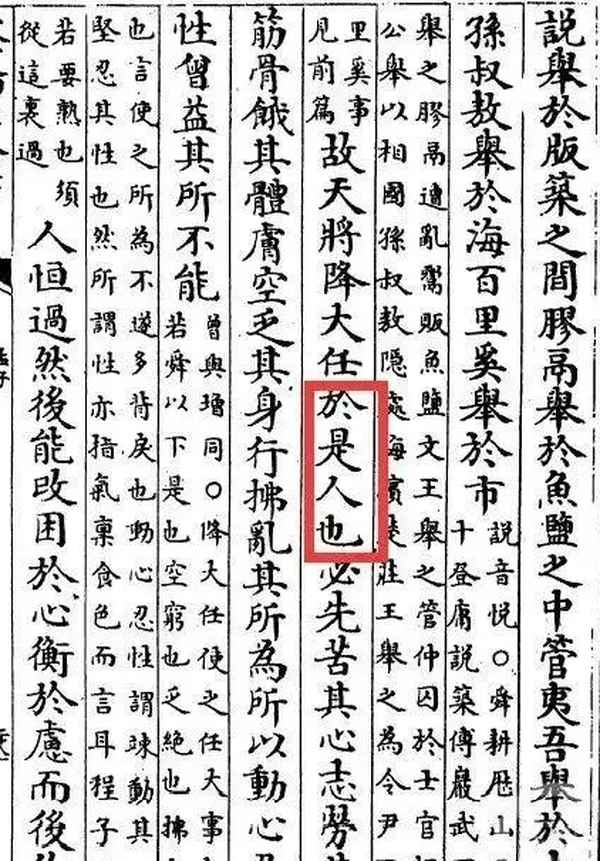 說舉於版築之間膠鬲舉於魚鹽之中管夷吾舉於
孫叔敖舉於海百里奚舉於市
說音悅○舜耕厯山
十登庸說築傅巖武
舉之膠鬲遭亂鬻販魚鹽文王舉之管仲囚於士官
公舉以相國孫叔敖隱處海濱楚莊王舉之為令尹
里奚事
見前篇
故天將降大任於是人也必先苦其心志勞其
筋骨餓其體膚空乏其身行拂亂其所為所以動心
性曾益其所不能
曾與增同○降大任使之任大事
若舜以下是也空窮也乏絕也拂
也言使之所為不遂多背戾也動心忍性謂竦動其
堅忍其性也然所謂性亦指氣稟食色而言耳程子
若要熟也須
從這裏過
人恒過然後能改困於心衡於慮而後